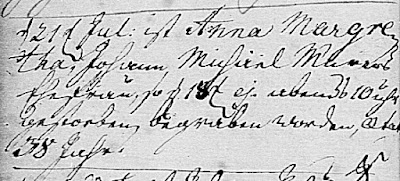 d 21t Jul: ist Anna Margre
tha, Johann, Michael Mevers
Ehefrau, so d 18t ej. abends 10 uhr
gestorben, begraben worden, Ætat
38 Jahr.